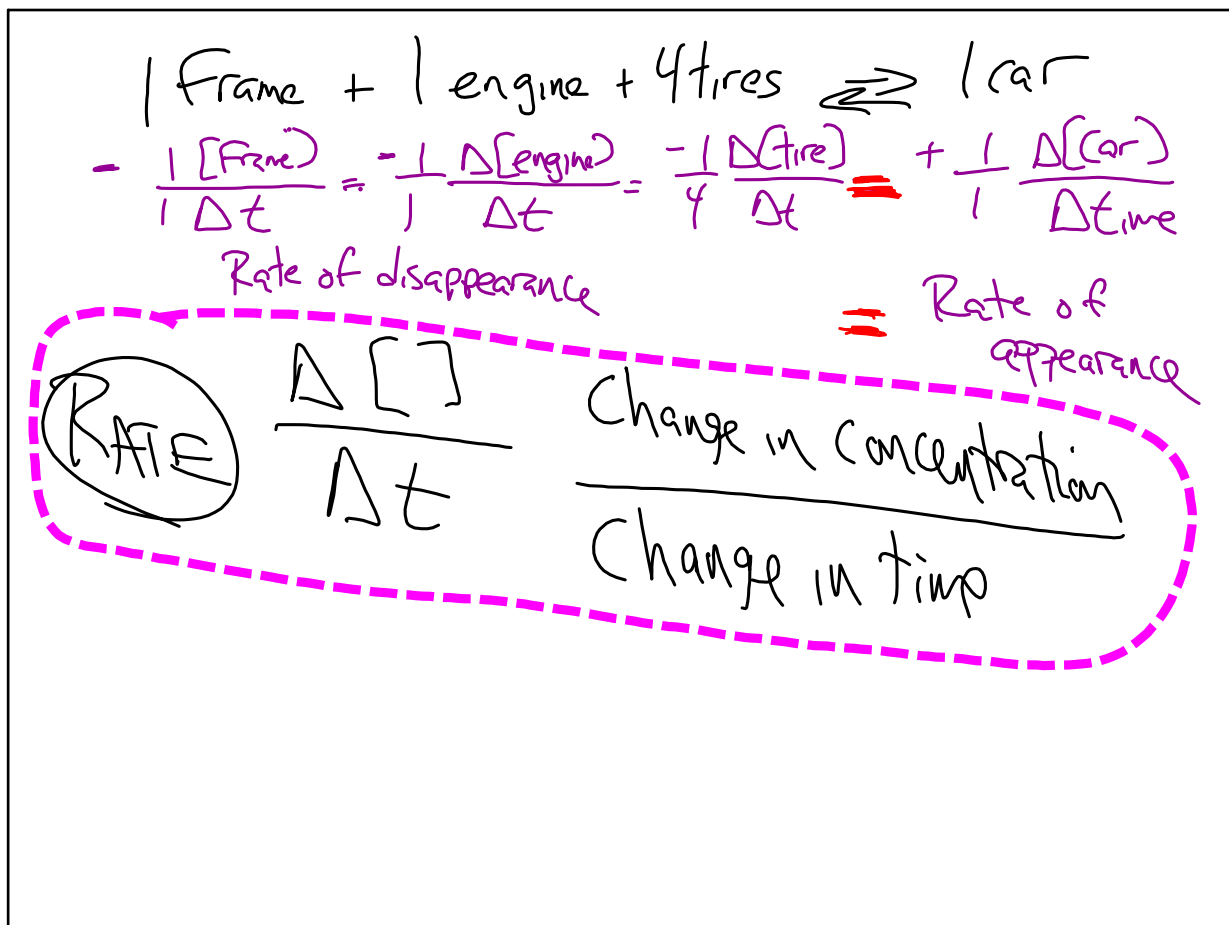 1 Frame + 1 engine + 4 tires ⇌ 1 car
- 1/1 [Frame]/Δt = - 1/1 Δ[engine]/Δt = -1/4 Δ[tire]/Δt = + 1/1 Δ[Car]/Δtime
Rate of disappearance = Rate of
appearance
RATE Δ[ ]/Δt Change in Concentration
Change in time